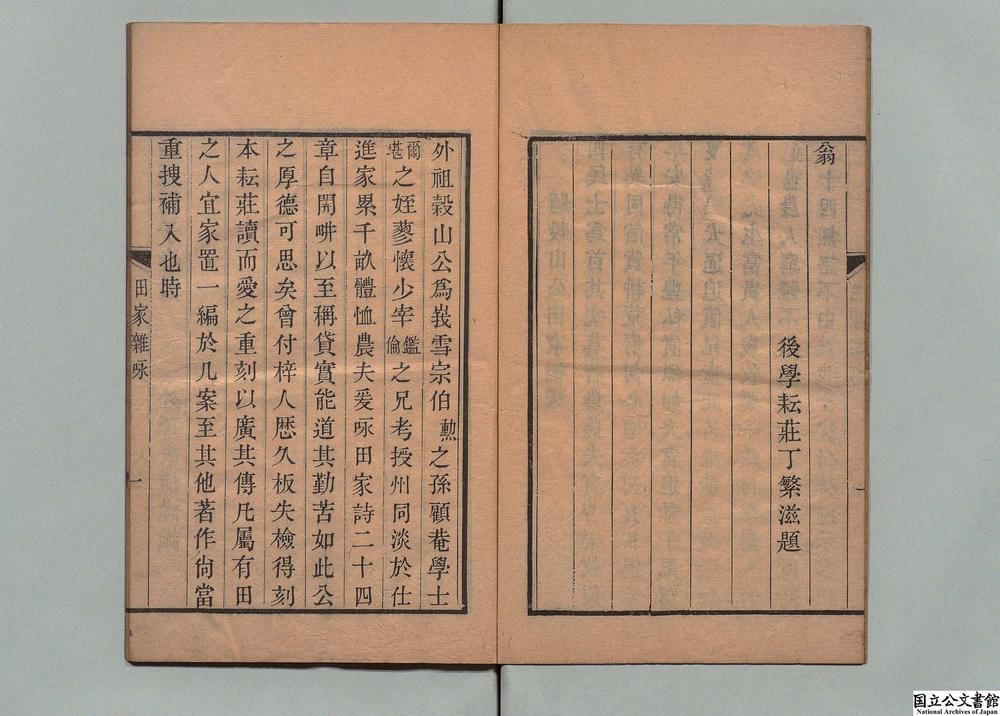 翁
後學耘莊丁繁滋題
外祖穀山公爲峩雪宗伯勲之孫顧菴學士
爾堪之姪蓼懷少宰鑑倫之兄考授州同淡於仕
進家累千畝體恤農夫爰咏田家詩二十四
章自開畊以至稱貸實能道其勤苦如此公
之厚德可思矣曾付梓人歷久板失檢得刻
本耘莊讀而愛之重刻以廣其傳凡屬有田
之人宜家置一編於几案至其他著作尙當
重搜補入也時
田家雜咏
一
国立公文書館
National Archives of Japan